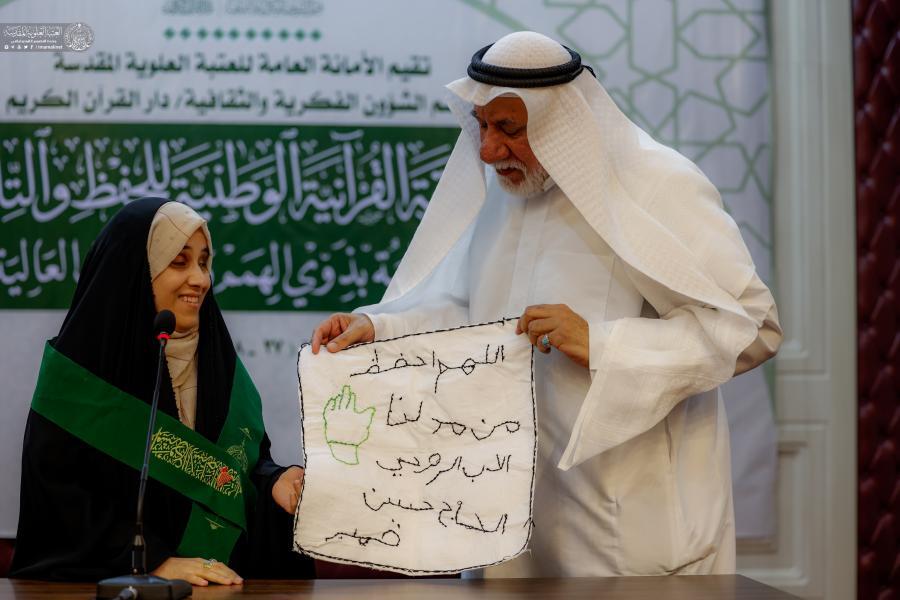 العتبة العلوية المقدسة
تقيم الأمانة العامة للعتبة العلوية المقدسة
الشؤون الفكرية والثقافية/ دار القرآن الكريم
القرآنية الوطنية للحفظ والتلا
بذوي الهمم العالية
اللهم احفظ
من مد لنا
الاب الروحي
الحاج حسين
خضير